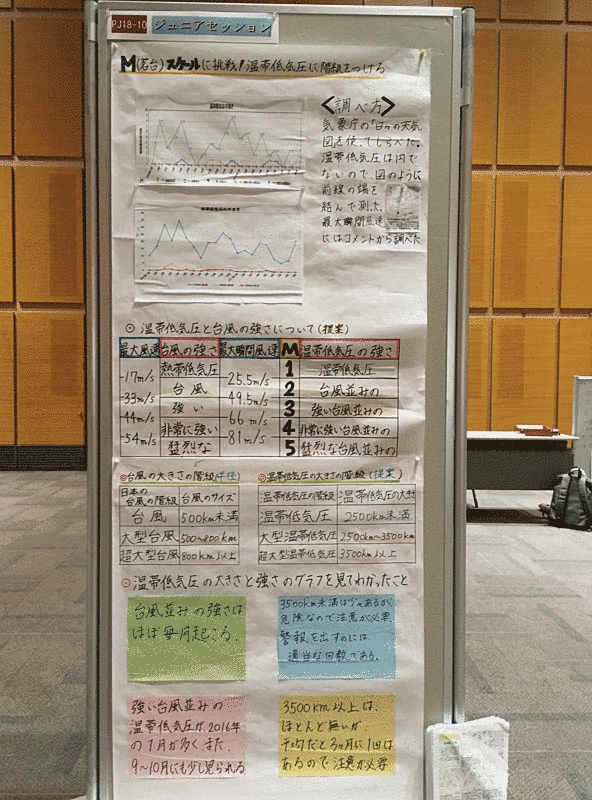 PJ18-10 ジュニアセッション
M(茗台)スケールに挑戦!温帯低気圧に階級をつける
<調べ方>
気象庁の「日々の天気
図を使ってしらべた。
温帯低気圧は円で
ないので、図のように
前線の場を
結んで測った。
最大瞬間風速
にはコメントから調べた
⊙ 温帯低気圧と台風の強さについて(提案)
最大風速 台風の強さ 最大瞬間風速 M 温帯低気圧の強さ
熱帯低気圧 1 温帯低気圧
-17m/s 25.5m/s
台風 2 台風並みの
-33m/s 49.5m/s
強い 3 強い台風並みの
-44m/s 66m/s
非常に強い 4 非常に強い台風並みの
-54m/s 81m/s
猛烈な 5 猛烈な台風並みの
◎台風の大きさの階級(半径) ◎温帯低気圧の大きさの階級(提案)
日本の
台風の階級 台風のサイズ 温帯低気圧の階級 温帯低気圧の大きさ
台風 500km未満 温帯低気圧 2500km未満
大型台風 500~800km 大型温帯低気圧 2500km~3500km
超大型台風 800km以上 超大型温帯低気圧 3500km以上
⊙温帯低気圧の大きさと強さのグラフを見てわかったこと
台風並みの強さは
ほぼ毎月起こる。
3500km未満は少々あるが
危険なので注意が必要
警報を出すのには
適当な回数である。
強い台風並みの
温帯低気圧が、2016年
の1月が多く、また、
9~10月にも少し見られる
3500km以上は、
ほとんど無いが
チェックだと3ヵ月に1回は
あるので注意が必要